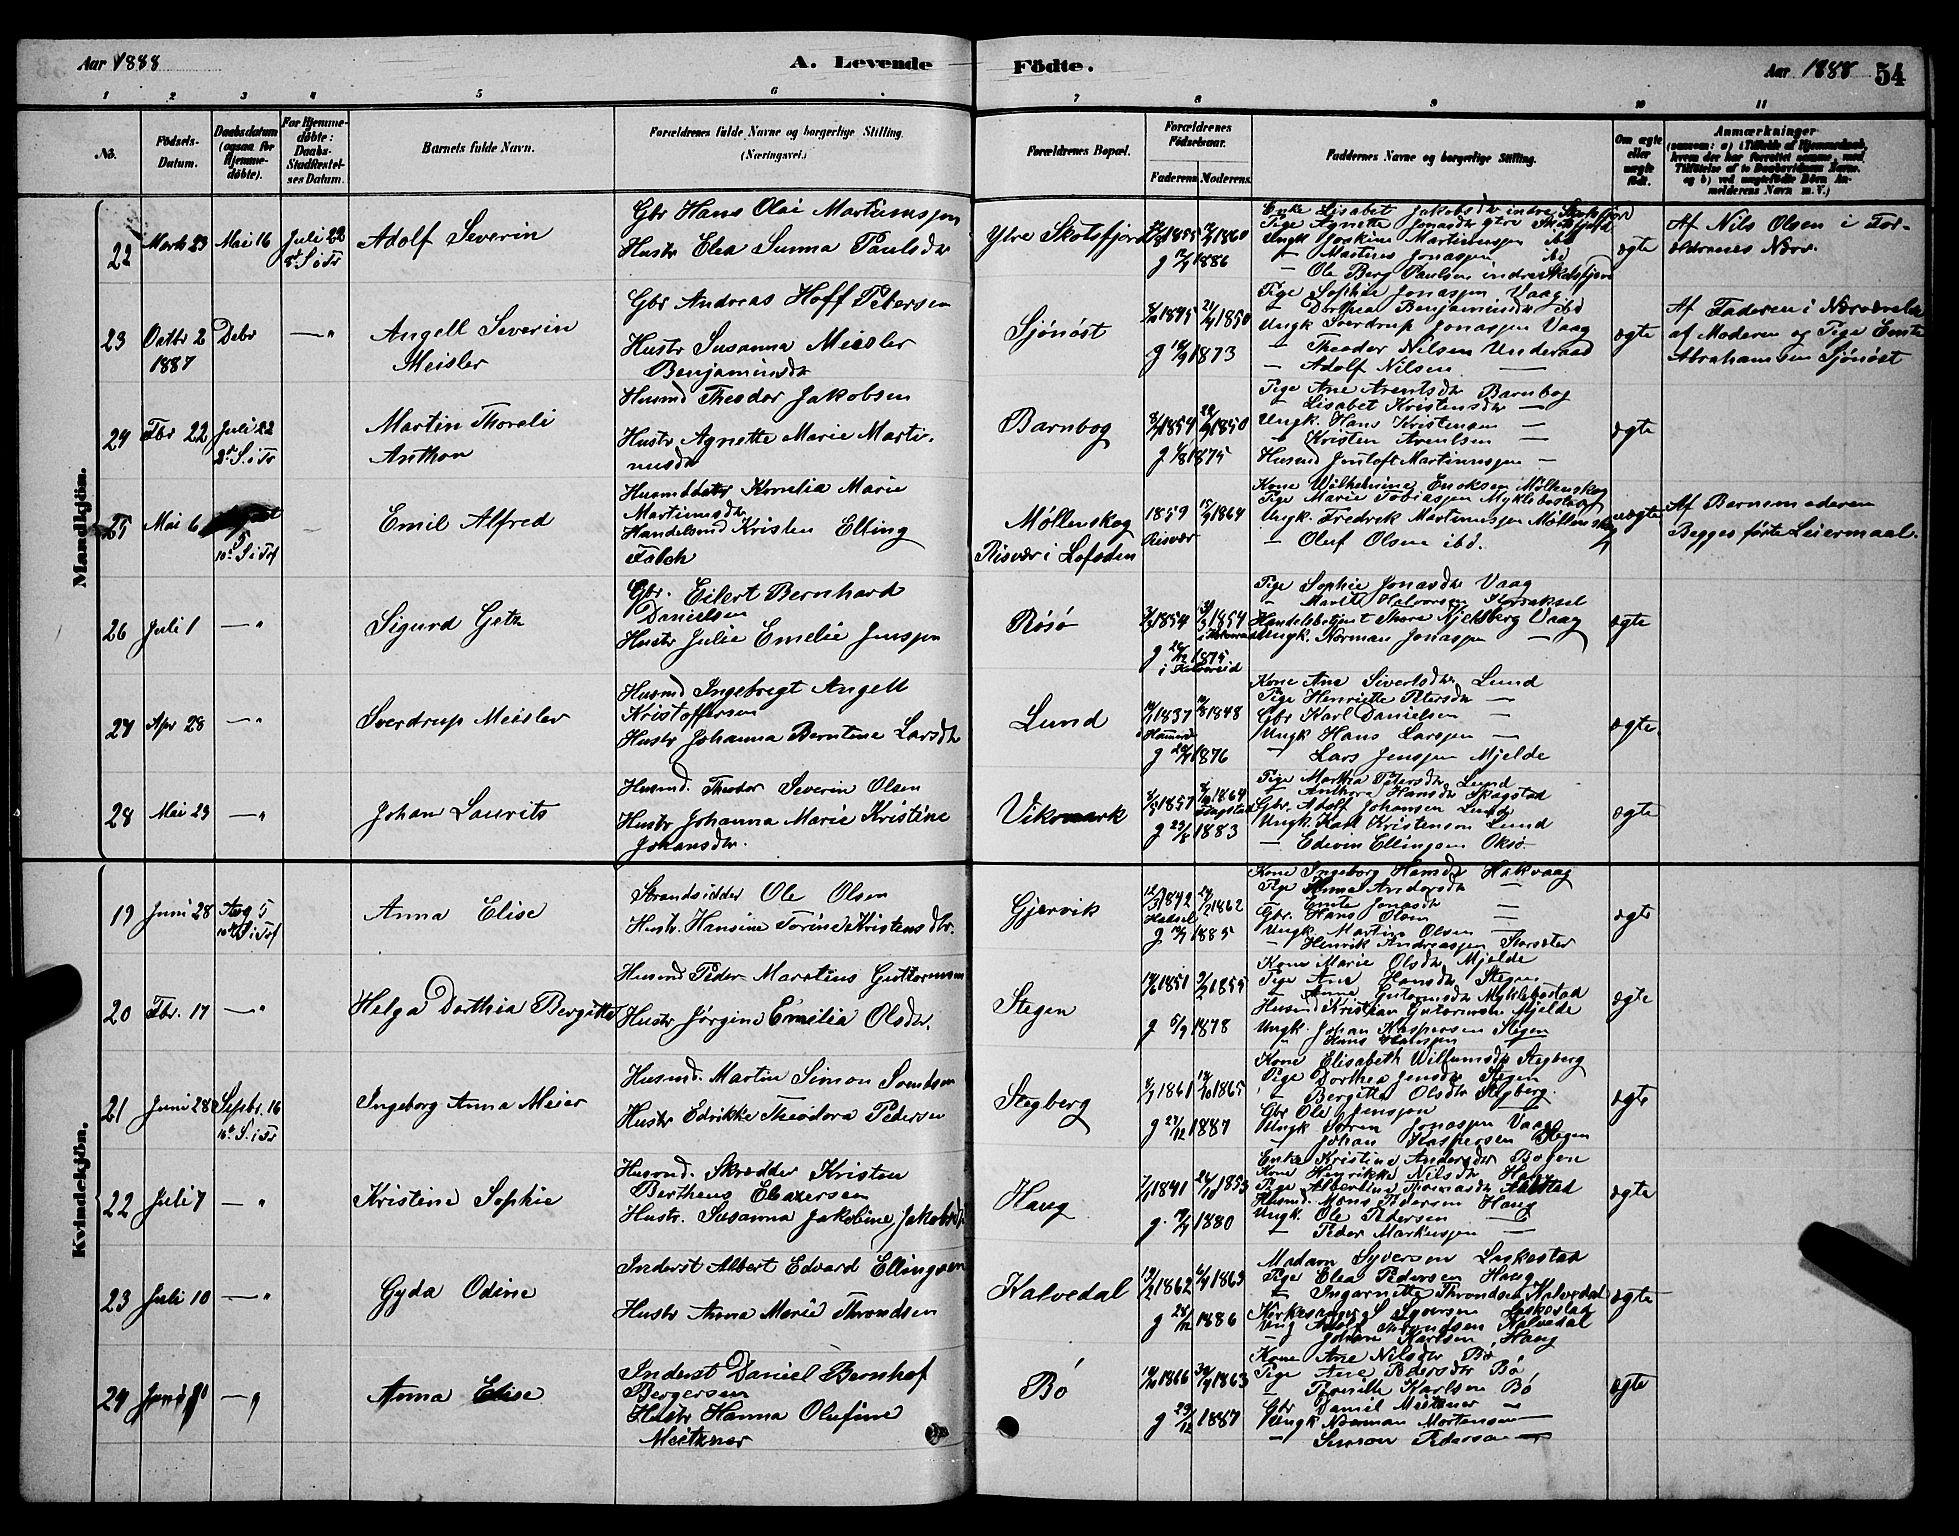 Aar 1888
A. Levende
Födte.
Aar 1888
54
1 2 3 4 5 6 7 8 9 10 11
No.
Födsels-Datum.
Daabsdatum (ogsaa for Hjemme-döbte).
For Hjemme-döbte: Daabs-Stadfæstelses Datum.
Barnets fulde Navn.
Forældrenes fulde Navne og borgerlige Stilling.
(Næringsvei.)
Forældrenes Bopæl.
Forældrenes Födselsaar.
Faderens Moderens
Faddernes Navne og borgerlige Stilling.
Om ægte eller uægte födt.
Anmærkninger
Mandkjön.
22 Marts 23 Mai 16 Juli 22
8de S. i Tr
Adolf Severin
Gbr Hans Olai Martinussen
Hustr Elea Sunna Paulsdtr
Ytre Skotsfjord
1855 1860
g 1886
Enke Lisabet Jakobsdtr indre Skotsfjord
Pige Agnette Jonasdtr ytre Skotsfjord
Ungk Joakim Martinussen ibd
— Martines Jonassen ibd
— Ole Berg Paulsen indre Skotsfjord
ægte
Af Nils Olsen i For-
ældrenes Nærv.
23 Octbr 2 Debr —"
1887
Angell Severin
Meisler
Gbr Andreas Hoff Petersen
Hustr Susanna Meisler
Benjaminsdtr
Sjönöst
1845 1850
g 1873
Pige Sophie Jonassen Vaag
— Dorthea Benjaminsdtr ibd
Ungk Sverdrup Jonassen Vaag
— Theodor Nilsen Underaad
— Adolf Nilsen —
ægte
Af Faderen i Nærværelse
af Moderen og Pige Emte
Abrahamsen Sjönöst
24 Fbr 22 Juli 22
8de S. i Tr
Martin Thorali
Anthon
Husmd Theodor Jakobsen
Hustr Agnette Marie Marti-
nusdtr
Barnbog
1854 1850
g 1875
Pige Ane Arentsdtr Barnbog
— Lisabet Kristensdtr —
Ungk. Hans Kristensen —
— Kristen Arentsen —
Husmd Jentoft Martinussen —
ægte
25 Mai 6
5
10de S. i Trf
Emil Alfred
Husmddatr Kornelia Marie
Martinusdtr
Handelsmd Kristen Elling
Falch
Möllenskog
Risvær i Lofoden
1859 1864
Risvær
Kone Wilhelmine Eriksen Möllenskog
Pige Marie Tobiassen Myklebostad
Ungk. Fredrik Martinussen Möllenskog
— Oluf Olsen ibd.
uægte
Af Barnemoderen
Begges förte Leiermaal.
26 Juli 1 —"
Sigurd Getz
Gbr. Eilert Bernhard
Danielsen
Hustr Julie Emelie Jenssen
Rösö
1854 1854
g 1875
Pige Sophie Jonasdtr Vaag
— Marete Halvorsen Korsaksel
Handelsbetjent Thore Kjeldsberg Vaag
Ungk. Norman Jonassen —
ægte
27 Apr 28 —"
Sverdrup Meisler
Husmd Ingebregt Angell
Kristoffersen
Hustr Johanna Berntine Larsdtr
Lund
1837 1848
Hammerö
g 1876
Kone Ane Sivertsdtr Lund
Pige Henriette Petersdtr —
Gbr Karl Danielsen —
Ungk Hans Larssen —
— Lars Jenssen Mjelde
ægte.
28 Mai 23 —"
Johan Laurits
Husmd. Theodor Severin Olsen
Hustr Johanna Marie Kristine
Johansdtr.
Vikmark
1857 1864
g 23/8 1883
Pige Martha Petersdtr Lund
— Anthora Hansdtr Skagstad
Gbr. Adolf Johansen Lund
Ungk. Karl Kristensen Lund
— Edevin Ellingsen Oksö
ægte
Kvindekjön.
19 Juni 28 Aug 5
10de S. i Trf
Anna Elise
Strandsidder Ole Olsen
Hustr. Hansine Torine Kristensdtr.
Gjervik
1842 1862
Hadsel
g 1885
Kone Ingeborg Hansdtr Hakvaag
Pige Anna Andersdtr —
— Emte Jonasdtr —
Gbr. Hans Olsen —
Ungk. Martin Olsen —
— Henrik Andreassen Storsæter
ægte
20 Fbr. 17 —"
Helga Dorthia Bergitte
Husmd Peder Martius Guttormsen
Hustr Jörgine Emilia Olsdtr.
Stegen
1851 1855
g 5/9 1878
Kone Marie Olsdtr Mjelde
Pige Ane Hansdtr Stegen
— Anne Gutormsdtr Myklebostad
Husmd Kristian Gutormsen Mjelde
Ungk. Johan Kaspersen Stegen
" Hans Hanssen "
ægte
21 Juni 28 Septbr. 16
16de S. i Tr
Ingeborg Anna Meier
Husmd. Martin Simon Svendsen
Hustr Edrikke Theodora Pedersen
Stegberg
1861 1865
g 27/12 1887
Kone Elisabeth Wilfumsdtr Stegberg
Pige Dorthea Jensdtr Stegen
— Bergitte Olsdtr Stegberg
Gbr Ole Jenssen —
Ungk Sören Jonassen Vaag
— Johan Kaspersen Stegen
ægte
22 Juli 7 —"
Kristine Sophie
Husmd. Skrædder Kristen
Bertheus Eleazersen
Hustr. Susanna Jakobine Jakobsdtr
Haug
1841 1853
g. 1880
Enke Kristine Andersdtr Bogen
Kone Henrikke Nilsdtr Haug
Pige Albertine Thomasdtr Aalstad
Husmd. Mons Pedersen Haug
Ungk. Ole Pedersen —
— Peder Markussen —
ægte
23 Juli 10 —"
Gyda Odine
Inderst Albert Edvard Ellingsen
Hustr Anna Marie Throndsen
Kalvedal
1862 1863
g 28/12 1886
Madam Syversen Leskestad
Pige Elea Pedersen Haug
— Ingarnitte Throndsen Kalvedal
Kirkesanger S. Syversen Leskestad
Ung Adolf Throndsen Kalvedal
— Johan Karlsen Haug
ægte
24 —"
Anna Elise
Inderst Daniel Bernhof
Bergersen
Hustr Hanna Olufine
Meitzner
Bö
1866 1863
g 29/12 1887
Kone Ane Nilsdtr Bö
Pige Ane Pedersdtr Bö
— Pernille Karlsen Bö
Gbr Daniel Meitzner —
Ungk Norman Mortensen —
— Simon Pedersen —
ægte